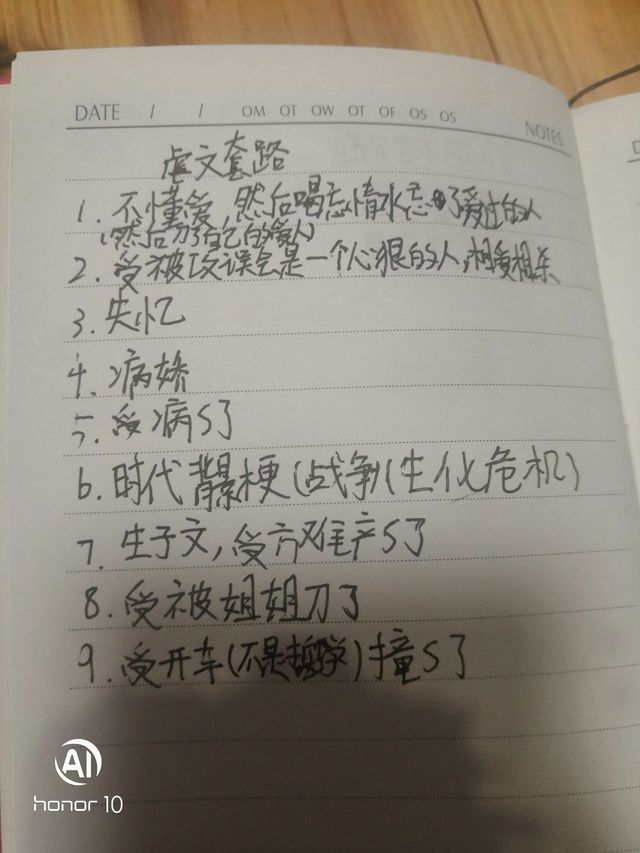 DATE / / OM OT OW OT OF OS OS
NOTES
虐文套路
1. 不懂爱,然后喝忘情水忘了爱过的人
(然后刀了自己的爱人)
2. 受被攻误会是一个心狠的人,相爱相杀
3. 失忆
4. 病娇
5. 受病S了
6. 时代背景梗(战争(生化危机)
7. 生子文,受方难产S了
8. 受被姐姐刀了
9. 受开车(不是哲学)撞S了
AI
honor 10